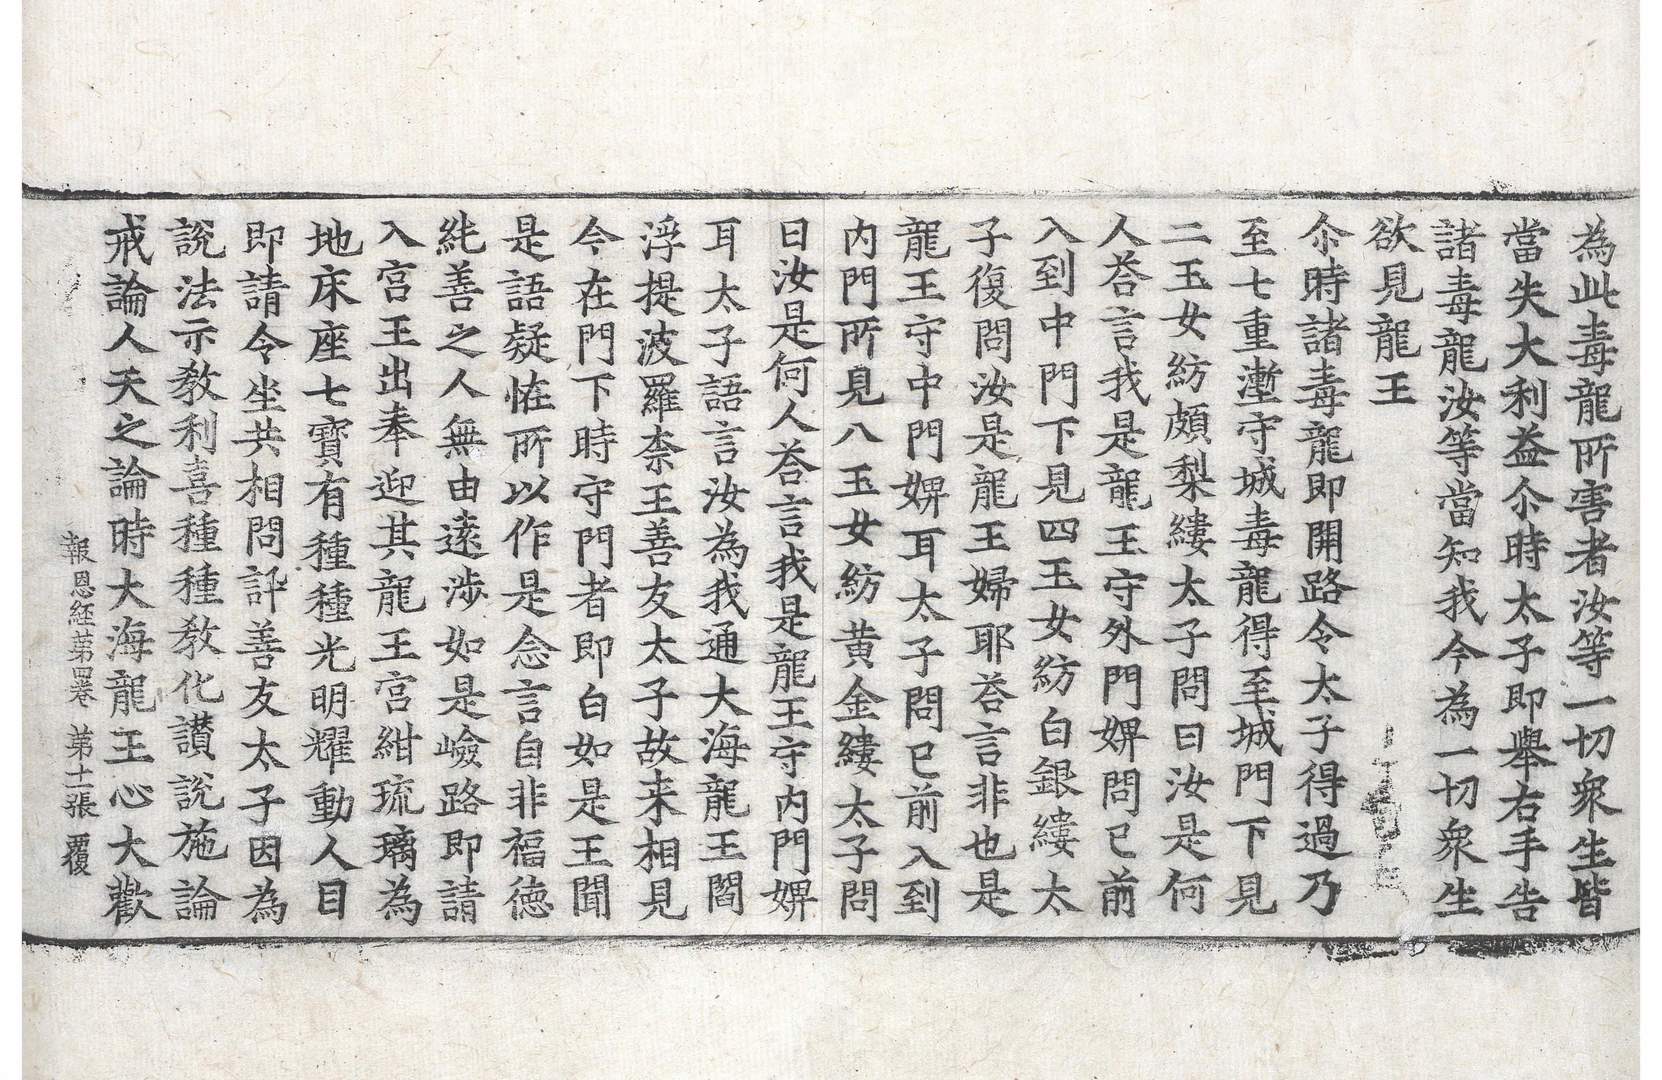 為此毒龍所害者汝等一切衆生皆
當失大利益尒時太子即舉右手告
諸毒龍汝等當知我今為一切衆生
欲見龍王
尒時諸毒龍即開路令太子得過乃
至七重壍守城毒龍得至城門下見
二玉女紡頗梨縷太子問曰汝是何
人荅言我是龍王守外門婢問已前
入到中門下見四玉女紡白銀縷太
子復問汝是龍王婦耶荅言非也是
龍王守中門婢耳太子問已前入到
内門所見八玉女紡黄金縷太子問
曰汝是何人荅言我是龍王守内門婢
耳太子語言汝為我通大海龍王閻
浮提波羅柰王善友太子故来相見
今在門下時守門者即白如是王聞
是語疑恠所以作是念言自非福徳
純善之人無由遠渉如是嶮路即請
入宮王出奉迎其龍王宮紺琉璃為
地床座七寶有種種光明耀動人目
即請令坐共相問訊善友太子因為
說法示敎利喜種種敎化讃說施論
戒論人天之論時大海龍王心大歡
報恩経苐四巻 苐十二張 覆